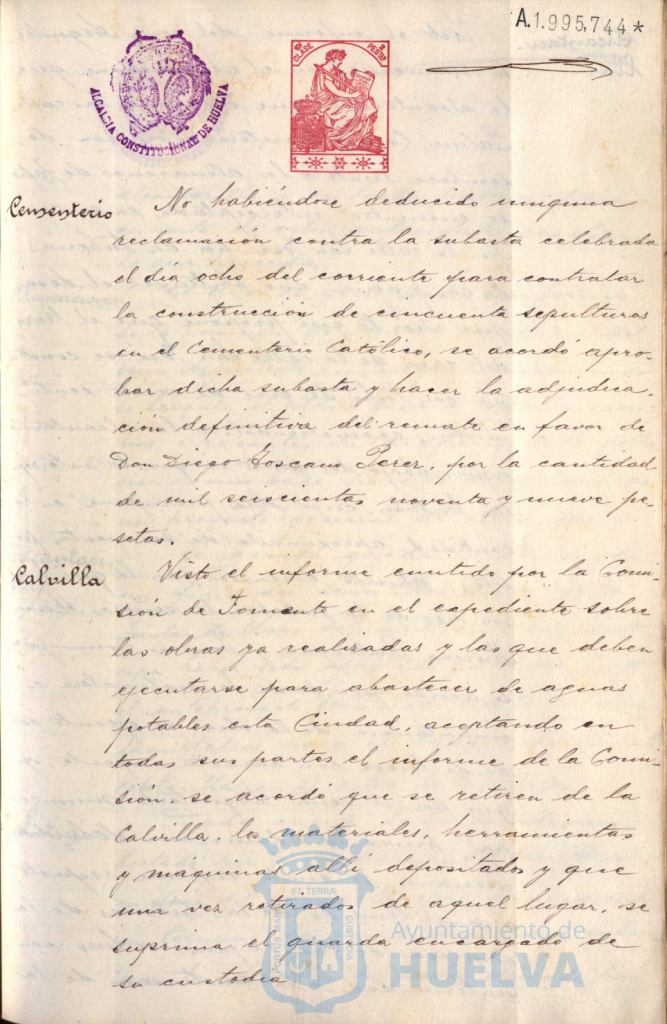 A.1.995,744*
10ª CLASE
2 PESETAS
ALCALDIA CONSTITUCIONAL DE HUELVA
Cementerio
No habiéndose deducido ninguna
reclamación contra la subasta celebrada
el día ocho del corriente para contratar
la construcción de cincuenta sepulturas
en el Cementerio Católico, se acordó apro-
bar dicha subasta y hacer la adjudica-
ción definitiva del remate en favor de
Don Diego Toscano Perez, por la cantidad
de mil seiscientas noventa y nueve pe-
setas.
Calvilla
Visto el informe emitido por la Comi-
sión de Fomento en el expediente sobre
las obras ya realizadas y las que deben
ejecutarse para abastecer de aguas
potables esta Ciudad, aceptando en
todas sus partes el informe de la Comi-
sión, se acordó que se retiren de la
Calvilla, los materiales, herramientas
y máquinas allí depositados y que
una vez retirados de aquel lugar, se
suprima el guarda encargado de
su custodia
PORTUS MARIS ET TERRÆ CUSTODIA
Ayuntamiento de
HUELVA